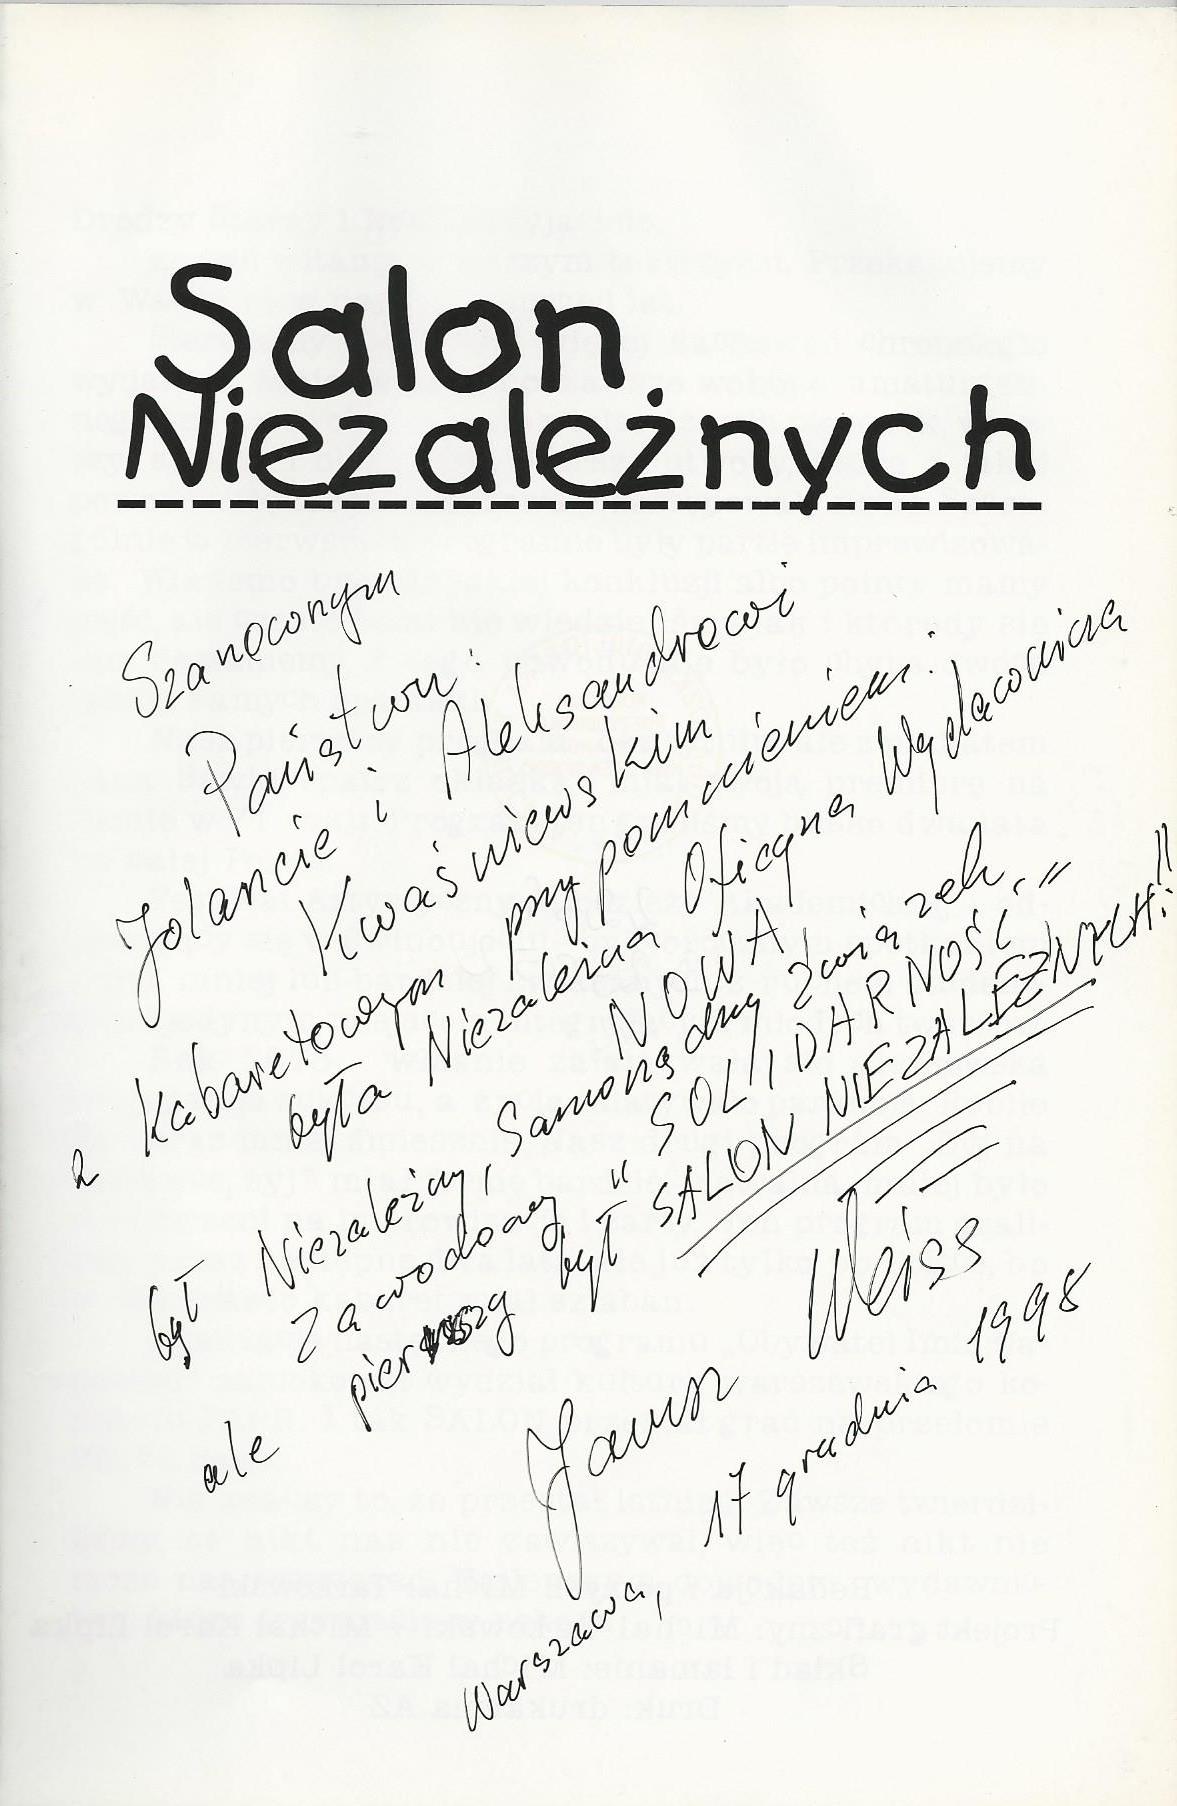 Salon
Niezależnych
Szanownym
Państwu
Jolancie i Aleksandrowi
Kwaśniewskim
z Kabaretowym przypomnieniem:
była Niezależna Oficyna Wydawnicza
NOWA
był Niezależny, Samorządny Związek
Zawodowy "SOLIDARNOŚĆ"
ale pierwszy był SALON NIEZALEŻNYCH!!
Janusz Weiss
Warszawa, 17 grudnia 1998